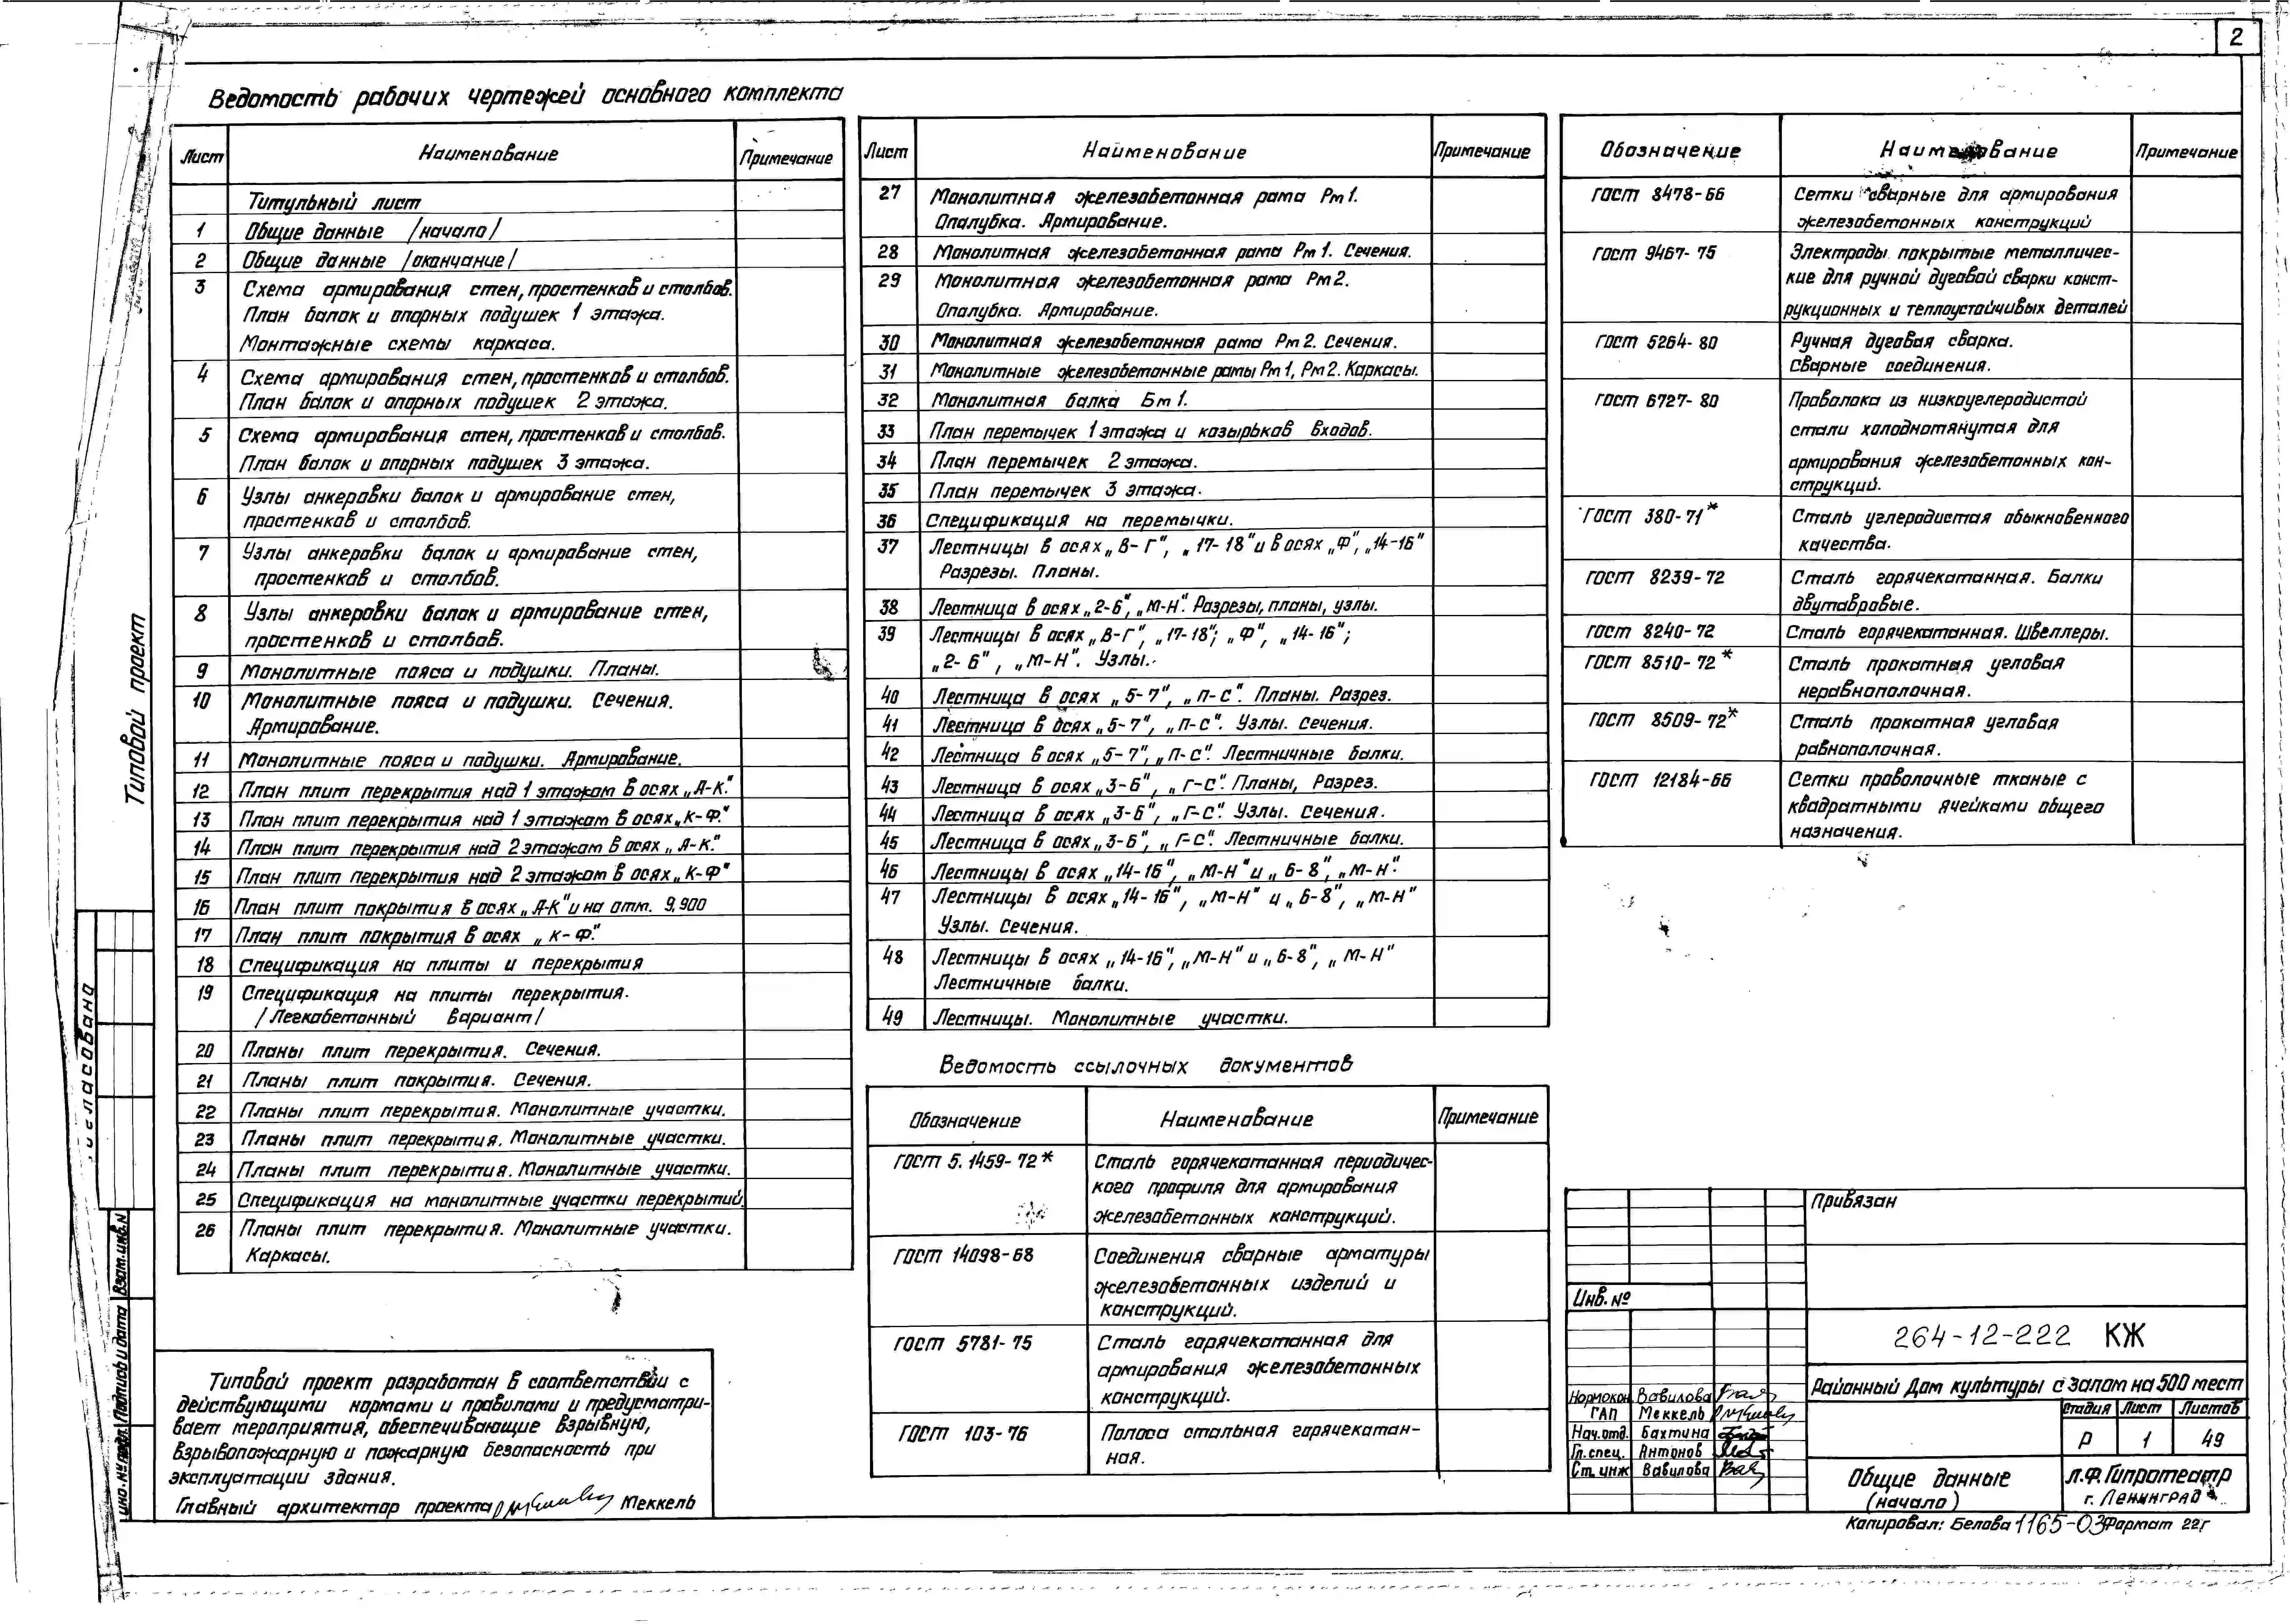 2
Ведомость рабочих чертежей основного комплекта
Лист Наименование Примечание
Титульный лист
1 Общие данные /начало/
2 Общие данные /окончание/
3 Схема армирования стен, простенков и столбов.
План балок и опорных подушек 1 этажа.
Монтажные схемы каркаса.
4 Схема армирования стен, простенков и столбов.
План балок и опорных подушек 2 этажа.
5 Схема армирования стен, простенков и столбов.
План балок и опорных подушек 3 этажа.
6 Узлы анкеровки балок и армирование стен,
простенков и столбов.
7 Узлы анкеровки балок и армирование стен,
простенков и столбов.
8 Узлы анкеровки балок и армирование стен,
простенков и столбов.
9 Монолитные пояса и подушки. Планы.
10 Монолитные пояса и подушки. Сечения.
Армирование.
11 Монолитные пояса и подушки. Армирование.
12 План плит перекрытия над 1 этажом в осях „А-К".
13 План плит перекрытия над 1 этажом в осях „К-Ф".
14 План плит перекрытия над 2 этажом в осях „А-К".
15 План плит перекрытия над 2 этажом в осях „К-Ф"
16 План плит покрытия в осях „А-К" и на отм. 9,900
17 План плит покрытия в осях „К-Ф".
18 Спецификация на плиты и перекрытия
19 Спецификация на плиты перекрытия.
/Легкобетонный вариант/
20 Планы плит перекрытия. Сечения.
21 Планы плит покрытия. Сечения.
22 Планы плит перекрытия. Монолитные участки.
23 Планы плит перекрытия. Монолитные участки.
24 Планы плит перекрытия. Монолитные участки.
25 Спецификация на монолитные участки перекрытий.
26 Планы плит перекрытия. Монолитные участки.
Каркасы.
Лист Наименование Примечание
27 Монолитная железобетонная рама Рм 1.
Опалубка. Армирование.
28 Монолитная железобетонная рама Рм 1. Сечения.
29 Монолитная железобетонная рама Рм 2.
Опалубка. Армирование.
30 Монолитная железобетонная рама Рм 2. Сечения.
31 Монолитные железобетонные рамы Рм 1, Рм 2. Каркасы.
32 Монолитная балка Бм 1.
33 План перемычек 1 этажа и козырьков входов.
34 План перемычек 2 этажа.
35 План перемычек 3 этажа.
36 Спецификация на перемычки.
37 Лестницы в осях „В-Г", „17-18" и в осях „Ф", „14-16"
Разрезы. Планы.
38 Лестница в осях „2-6", „М-Н". Разрезы, планы, узлы.
39 Лестницы в осях „В-Г", „17-18"; „Ф", „14-16";
„2-6", „М-Н". Узлы.
40 Лестница в осях „5-7", „П-С". Планы. Разрез.
41 Лестница в осях „5-7", „П-С". Узлы. Сечения.
42 Лестница в осях „5-7", „П-С". Лестничные балки.
43 Лестница в осях „3-6", „Г-С". Планы, Разрез.
44 Лестница в осях „3-6", „Г-С". Узлы. Сечения.
45 Лестница в осях „3-6", „Г-С". Лестничные балки.
46 Лестницы в осях „14-16", „М-Н" и „6-8", „М-Н".
47 Лестницы в осях „14-16", „М-Н" и „6-8", „М-Н"
Узлы. Сечения.
48 Лестницы в осях „14-16", „М-Н" и „6-8", „М-Н"
Лестничные балки.
49 Лестницы. Монолитные участки.
Ведомость ссылочных документов
Обозначение Наименование Примечание
ГОСТ 5.1459-72* Сталь горячекатанная периодичес-
кого профиля для армирования
железобетонных конструкций.
ГОСТ 14098-68 Соединения сварные арматуры
железобетонных изделий и
конструкций.
ГОСТ 5781-75 Сталь горячекатанная для
армирования железобетонных
конструкций.
ГОСТ 103-76 Полоса стальная горячекатан-
ная.
Обозначение Наименование Примечание
ГОСТ 8478-66 Сетки сварные для армирования
железобетонных конструкций
ГОСТ 9467-75 Электроды покрытые металличес-
кие для ручной дуговой сварки конст-
рукционных и теплоустойчивых деталей
ГОСТ 5264-80 Ручная дуговая сварка.
Сварные соединения.
ГОСТ 6727-80 Проволока из низкоуглеродистой
стали холоднотянутая для
армирования железобетонных кон-
струкций.
ГОСТ 380-71* Сталь углеродистая обыкновенного
качества.
ГОСТ 8239-72 Сталь горячекатанная. Балки
двутавровые.
ГОСТ 8240-72 Сталь горячекатанная. Швеллеры.
ГОСТ 8510-72* Сталь прокатная угловая
неравнополочная.
ГОСТ 8509-72* Сталь прокатная угловая
равнополочная.
ГОСТ 12184-66 Сетки проволочные тканые с
квадратными ячейками общего
назначения.
Типовой проект
Взам.инв.N
Подпись и дата
Инв.№ подл.
Типовой проект разработан в соответствии с
действующими нормами и правилами и предусматри-
вает мероприятия, обеспечивающие взрывную,
взрывопожарную и пожарную безопасность при
эксплуатации здания.
Главный архитектор проекта Меккель
Привязан
Инв. №
264-12-222 КЖ
Районный Дом культуры с залом на 500 мест
Нормокон Вавилова
ГАП Меккель
Нач.отд. Бахтина
Гл.спец. Антонов
Ст. инж Вавилова
Стадия Лист Листов
Р 1 49
Общие данные
(начало)
Л.Ф. Гипротеатр
г. Ленинград
Копировал: Белова 1165-03 Формат 22г